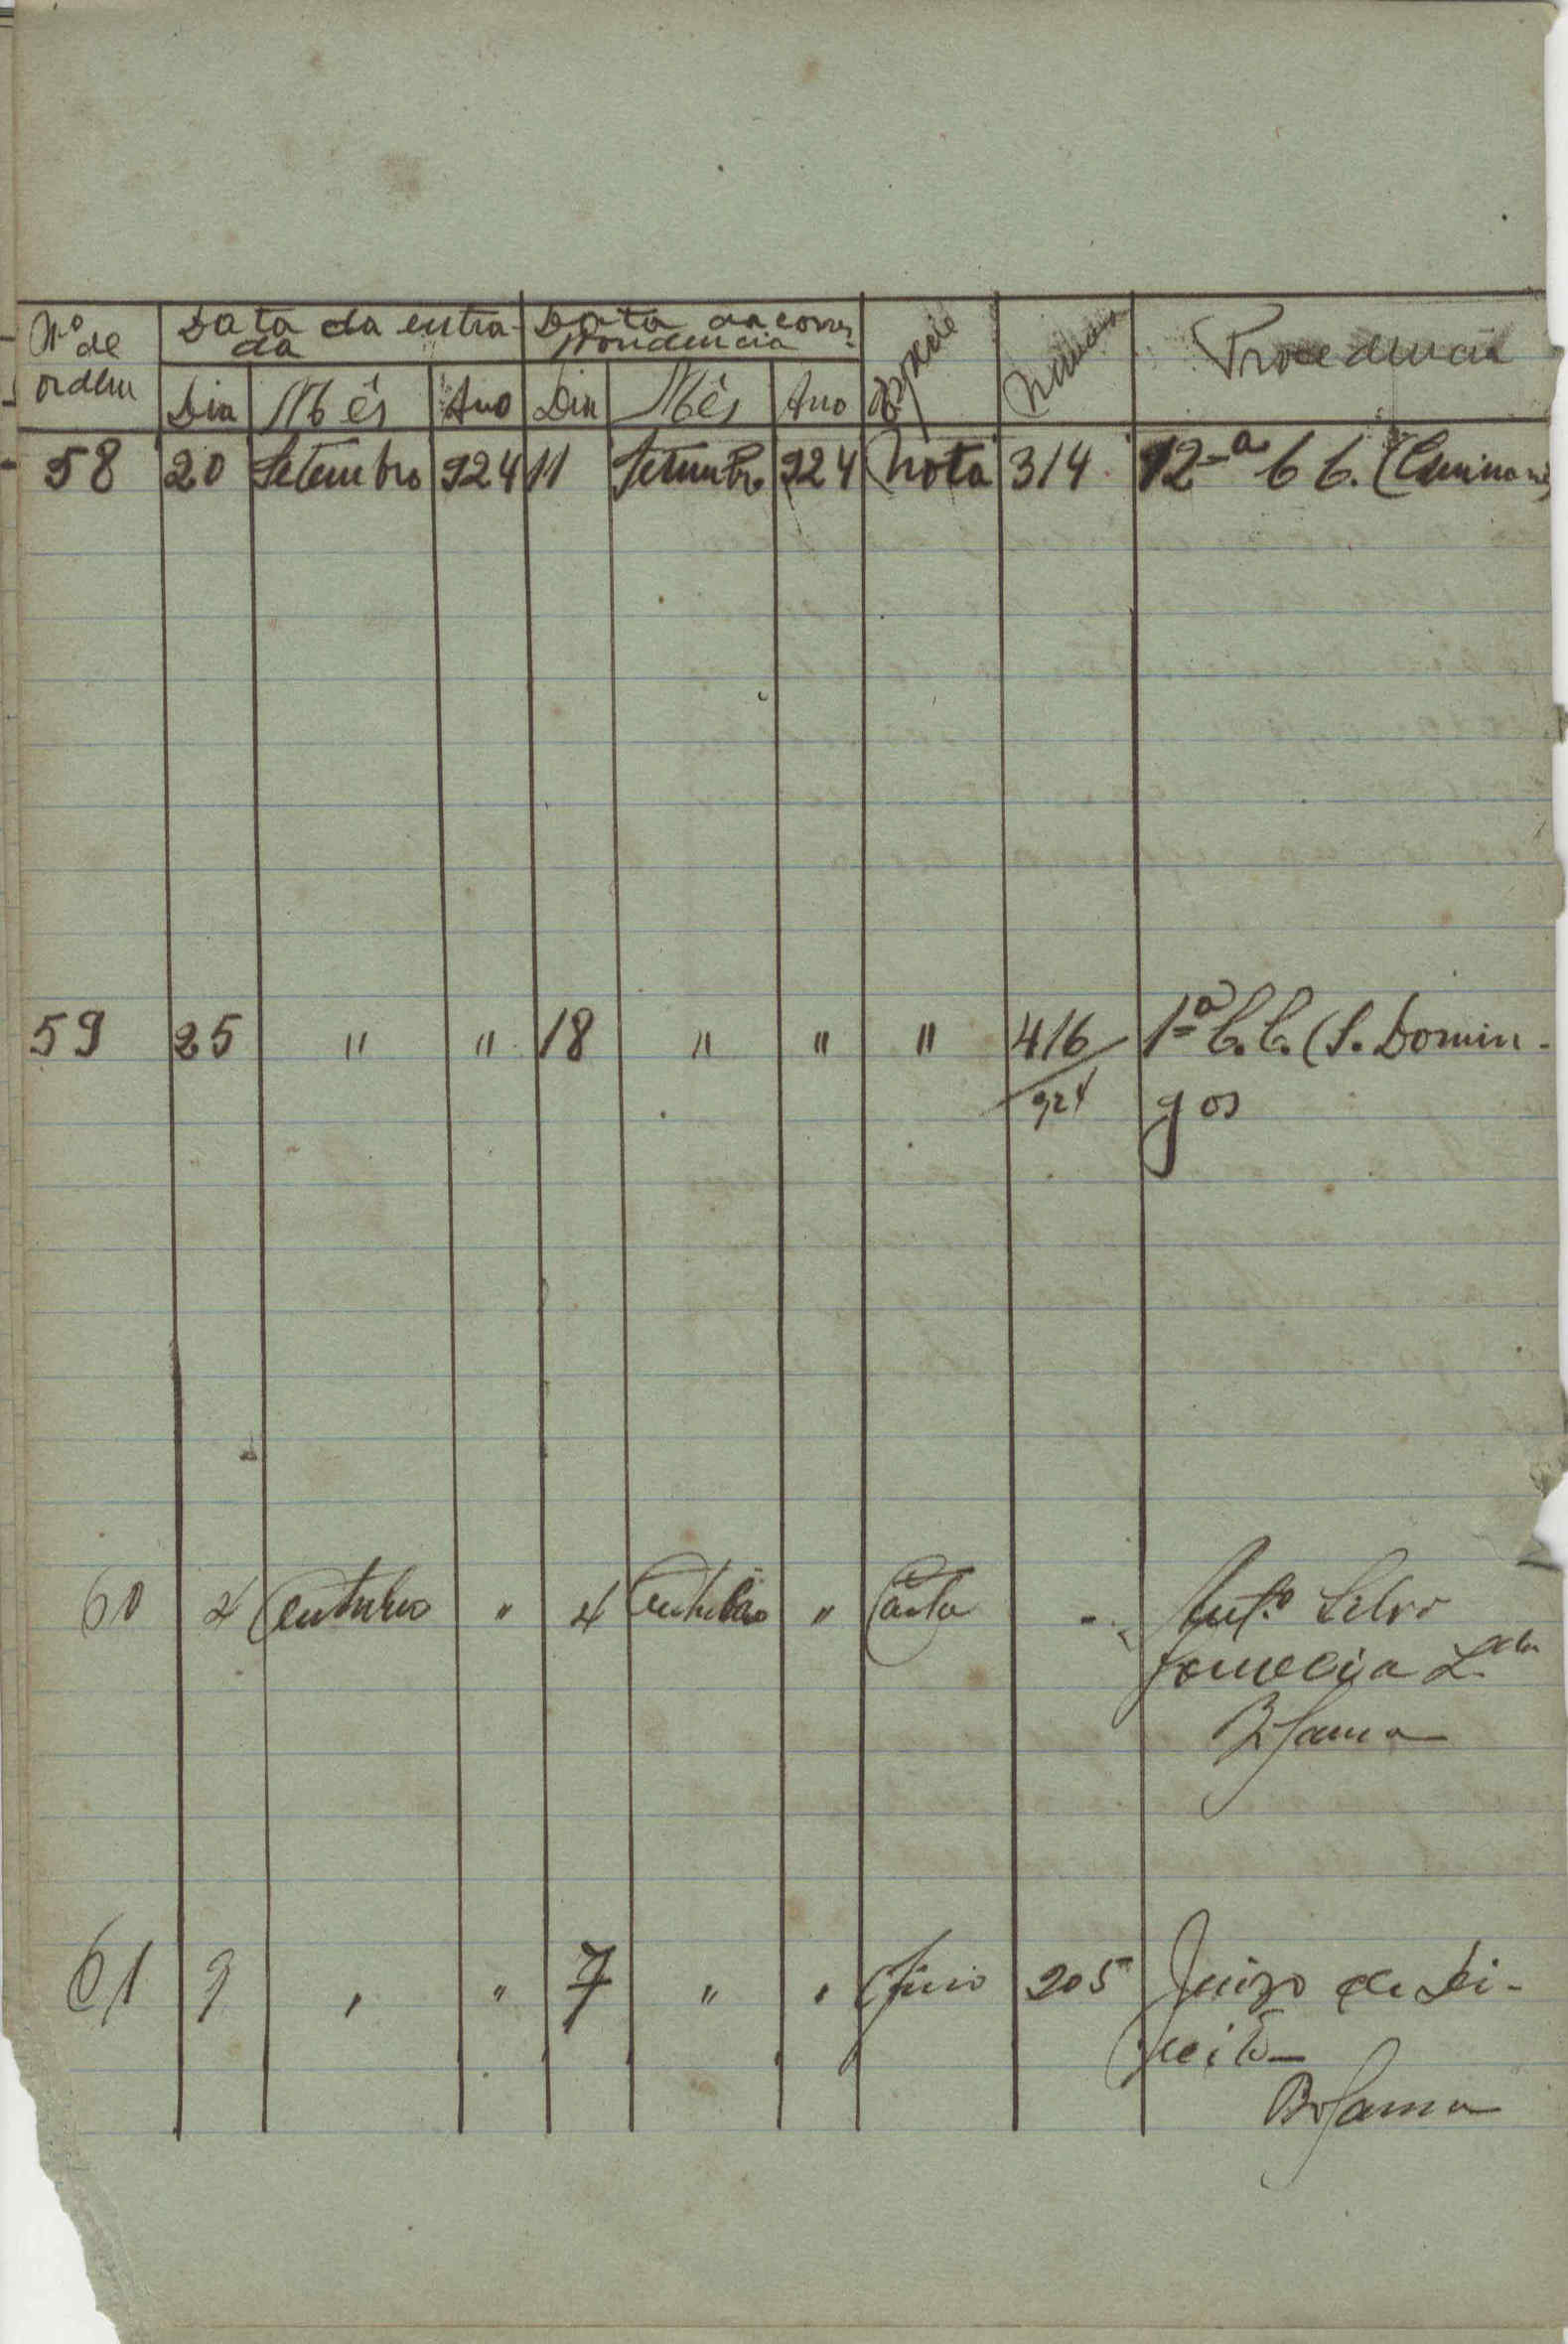 Nº de ordem Data da entrada Data da correspondencia Especie Numero Procedencia
Dia Mês Ano Dia Mês Ano
58 20 Setembro 924 11 Setembro 924 Nota 314 12ª C C.
59 25 " " 18 " " " 416/924 1ª C. C. (S. Domin-
gos
60 4 Outubro " 4 Outubro " Carta - Antº Silva
Gouveia Lda
Bolama
61 9 " " 7 " " Oficio 205 Juizo de Di-
reito
Bolama